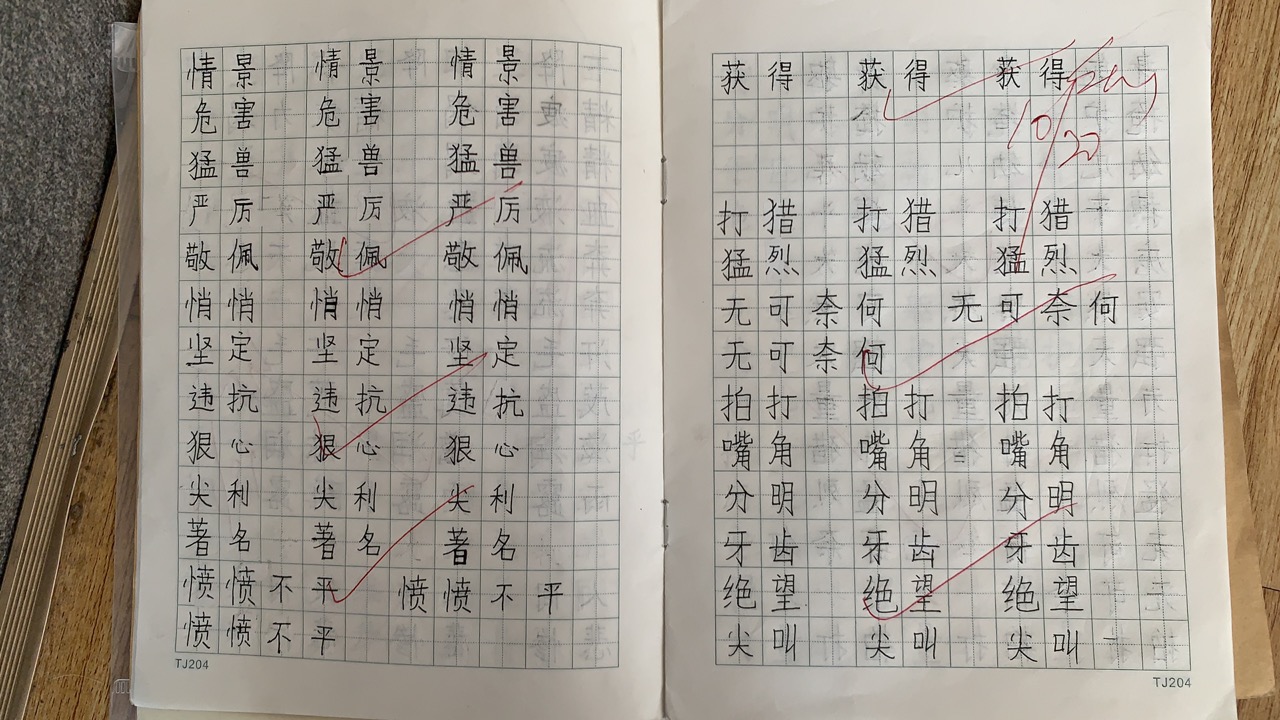 情景 情景 情景
危害 危害 危害
猛兽 猛兽 猛兽
严厉 严厉 严厉
敬佩 敬佩 敬佩
悄悄 悄悄 悄悄
坚定 坚定 坚定
违抗 违抗 违抗
狠心 狠心 狠心
尖利 尖利 尖利
著名 著名 著名
愤愤不平 愤愤不平
愤愤不平
TJ204
获得 获得 获得
10/20
打猎 打猎 打猎
猛烈 猛烈 猛烈
无可奈何 无可奈何
无可奈何
拍打 拍打 拍打
嘴角 嘴角 嘴角
分明 分明 分明
牙齿 牙齿 牙齿
绝望 绝望 绝望
尖叫 尖叫 尖叫
TJ204